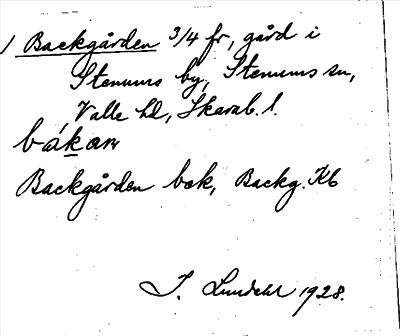 1 Backgården 3/4 fr, gård i
Stenums by, Stenums sn,
Valle hd, Skarab. l.
bákan
Backgården bok, Backg. Kb
I. Lundahl 1928.